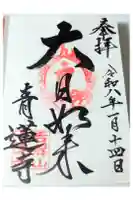 奉拝
令和八年一月十四日
大日如来
青蓮寺